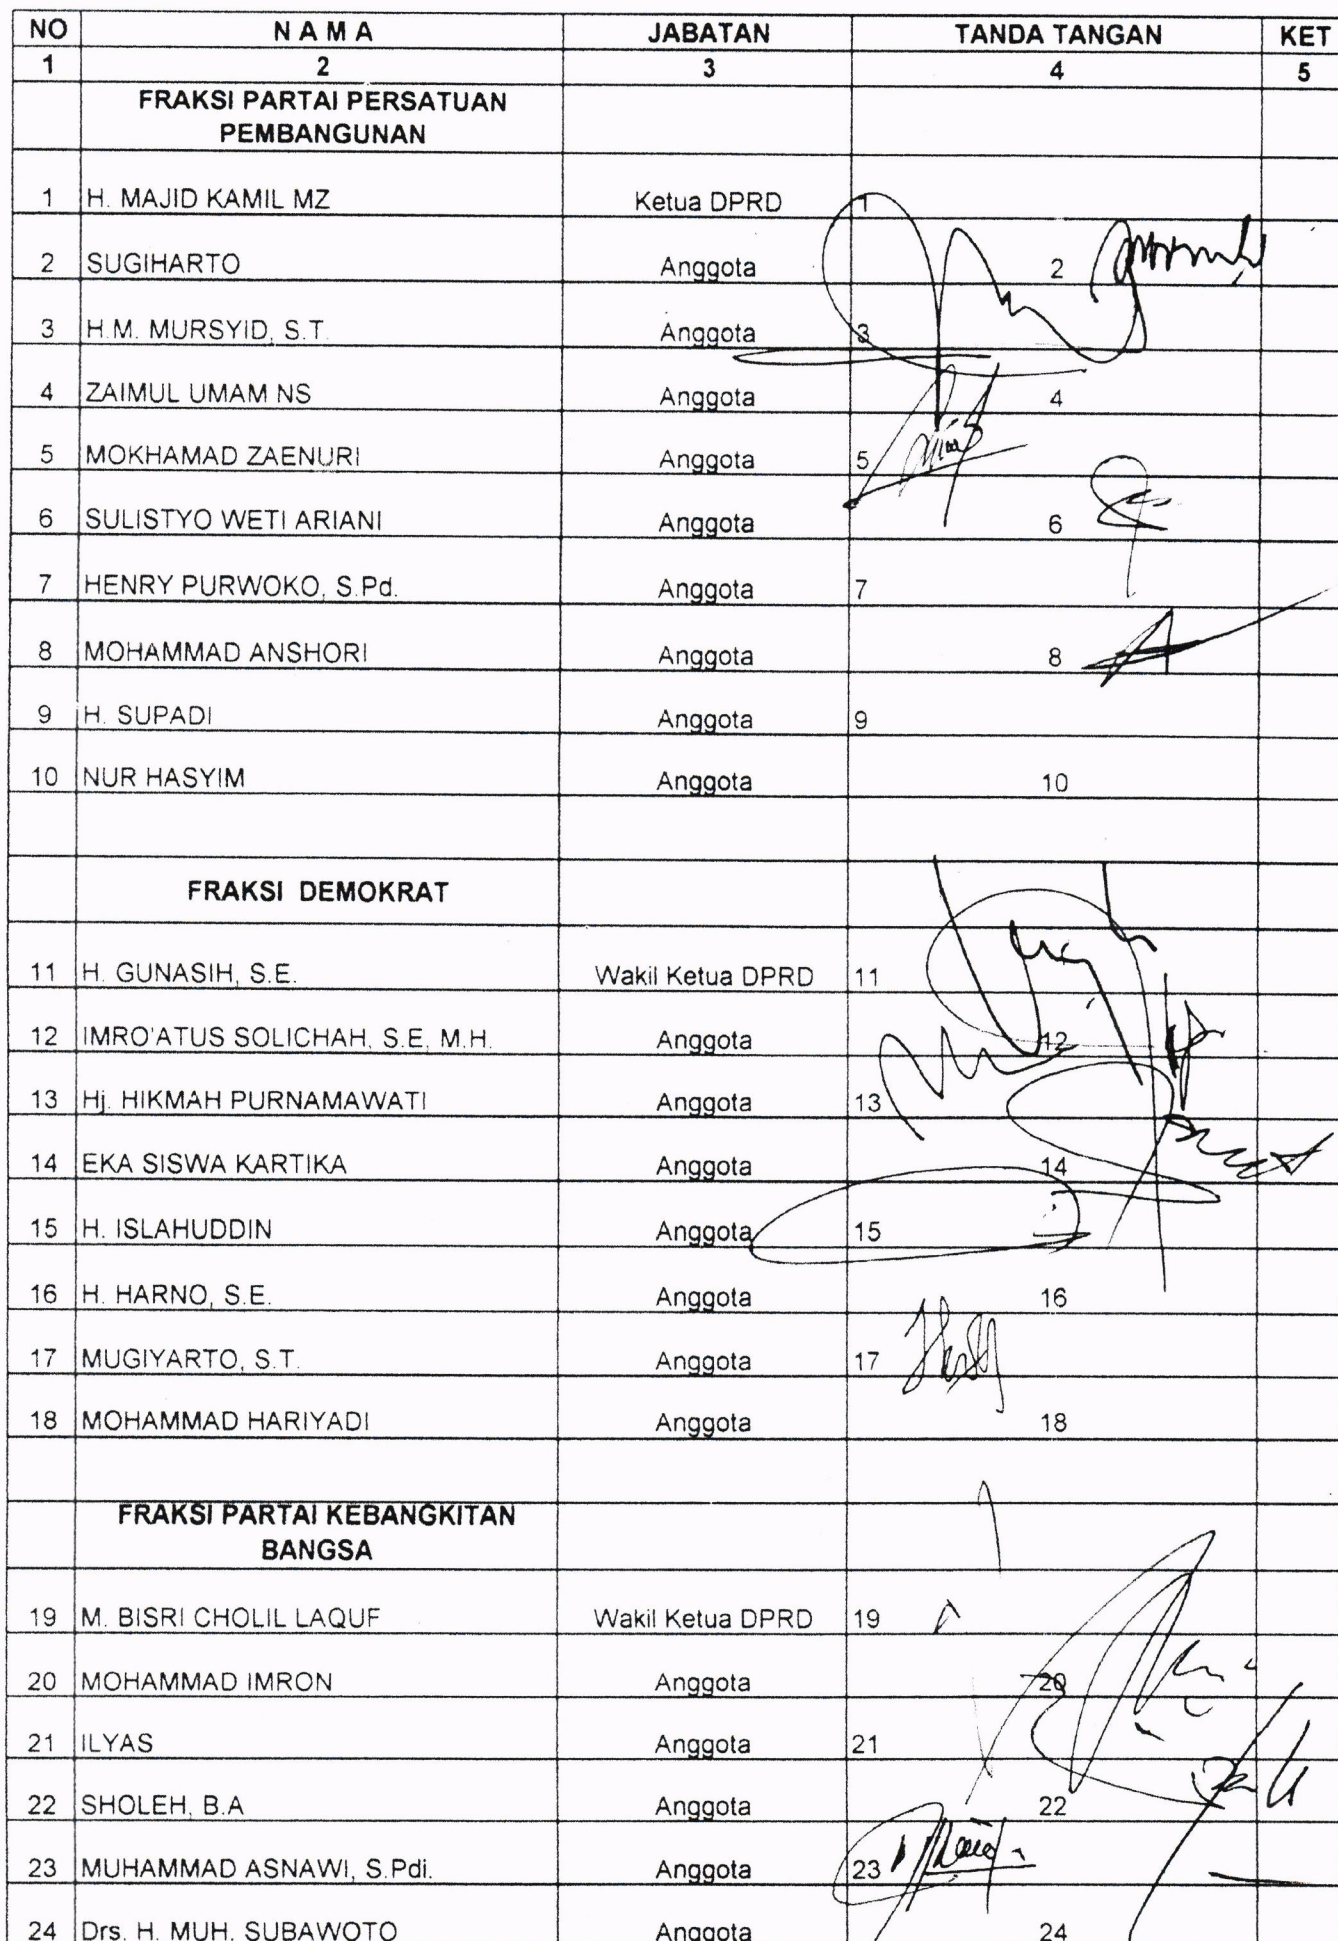 NO N A M A JABATAN TANDA TANGAN KET
1 2 3 4 5
FRAKSI PARTAI PERSATUAN
PEMBANGUNAN
1 H. MAJID KAMIL MZ Ketua DPRD 1
2 SUGIHARTO Anggota 2
3 H.M. MURSYID, S.T. Anggota 3
4 ZAIMUL UMAM NS Anggota 4
5 MOKHAMAD ZAENURI Anggota 5
6 SULISTYO WETI ARIANI Anggota 6
7 HENRY PURWOKO, S.Pd. Anggota 7
8 MOHAMMAD ANSHORI Anggota 8
9 H. SUPADI Anggota 9
10 NUR HASYIM Anggota 10
FRAKSI DEMOKRAT
11 H. GUNASIH, S.E. Wakil Ketua DPRD 11
12 IMRO'ATUS SOLICHAH, S.E, M.H. Anggota 12
13 Hj. HIKMAH PURNAMAWATI Anggota 13
14 EKA SISWA KARTIKA Anggota 14
15 H. ISLAHUDDIN Anggota 15
16 H. HARNO, S.E. Anggota 16
17 MUGIYARTO, S.T. Anggota 17
18 MOHAMMAD HARIYADI Anggota 18
FRAKSI PARTAI KEBANGKITAN
BANGSA
19 M. BISRI CHOLIL LAQUF Wakil Ketua DPRD 19
20 MOHAMMAD IMRON Anggota 20
21 ILYAS Anggota 21
22 SHOLEH, B.A Anggota 22
23 MUHAMMAD ASNAWI, S.Pdi. Anggota 23
24 Drs. H. MUH. SUBAWOTO Anggota 24